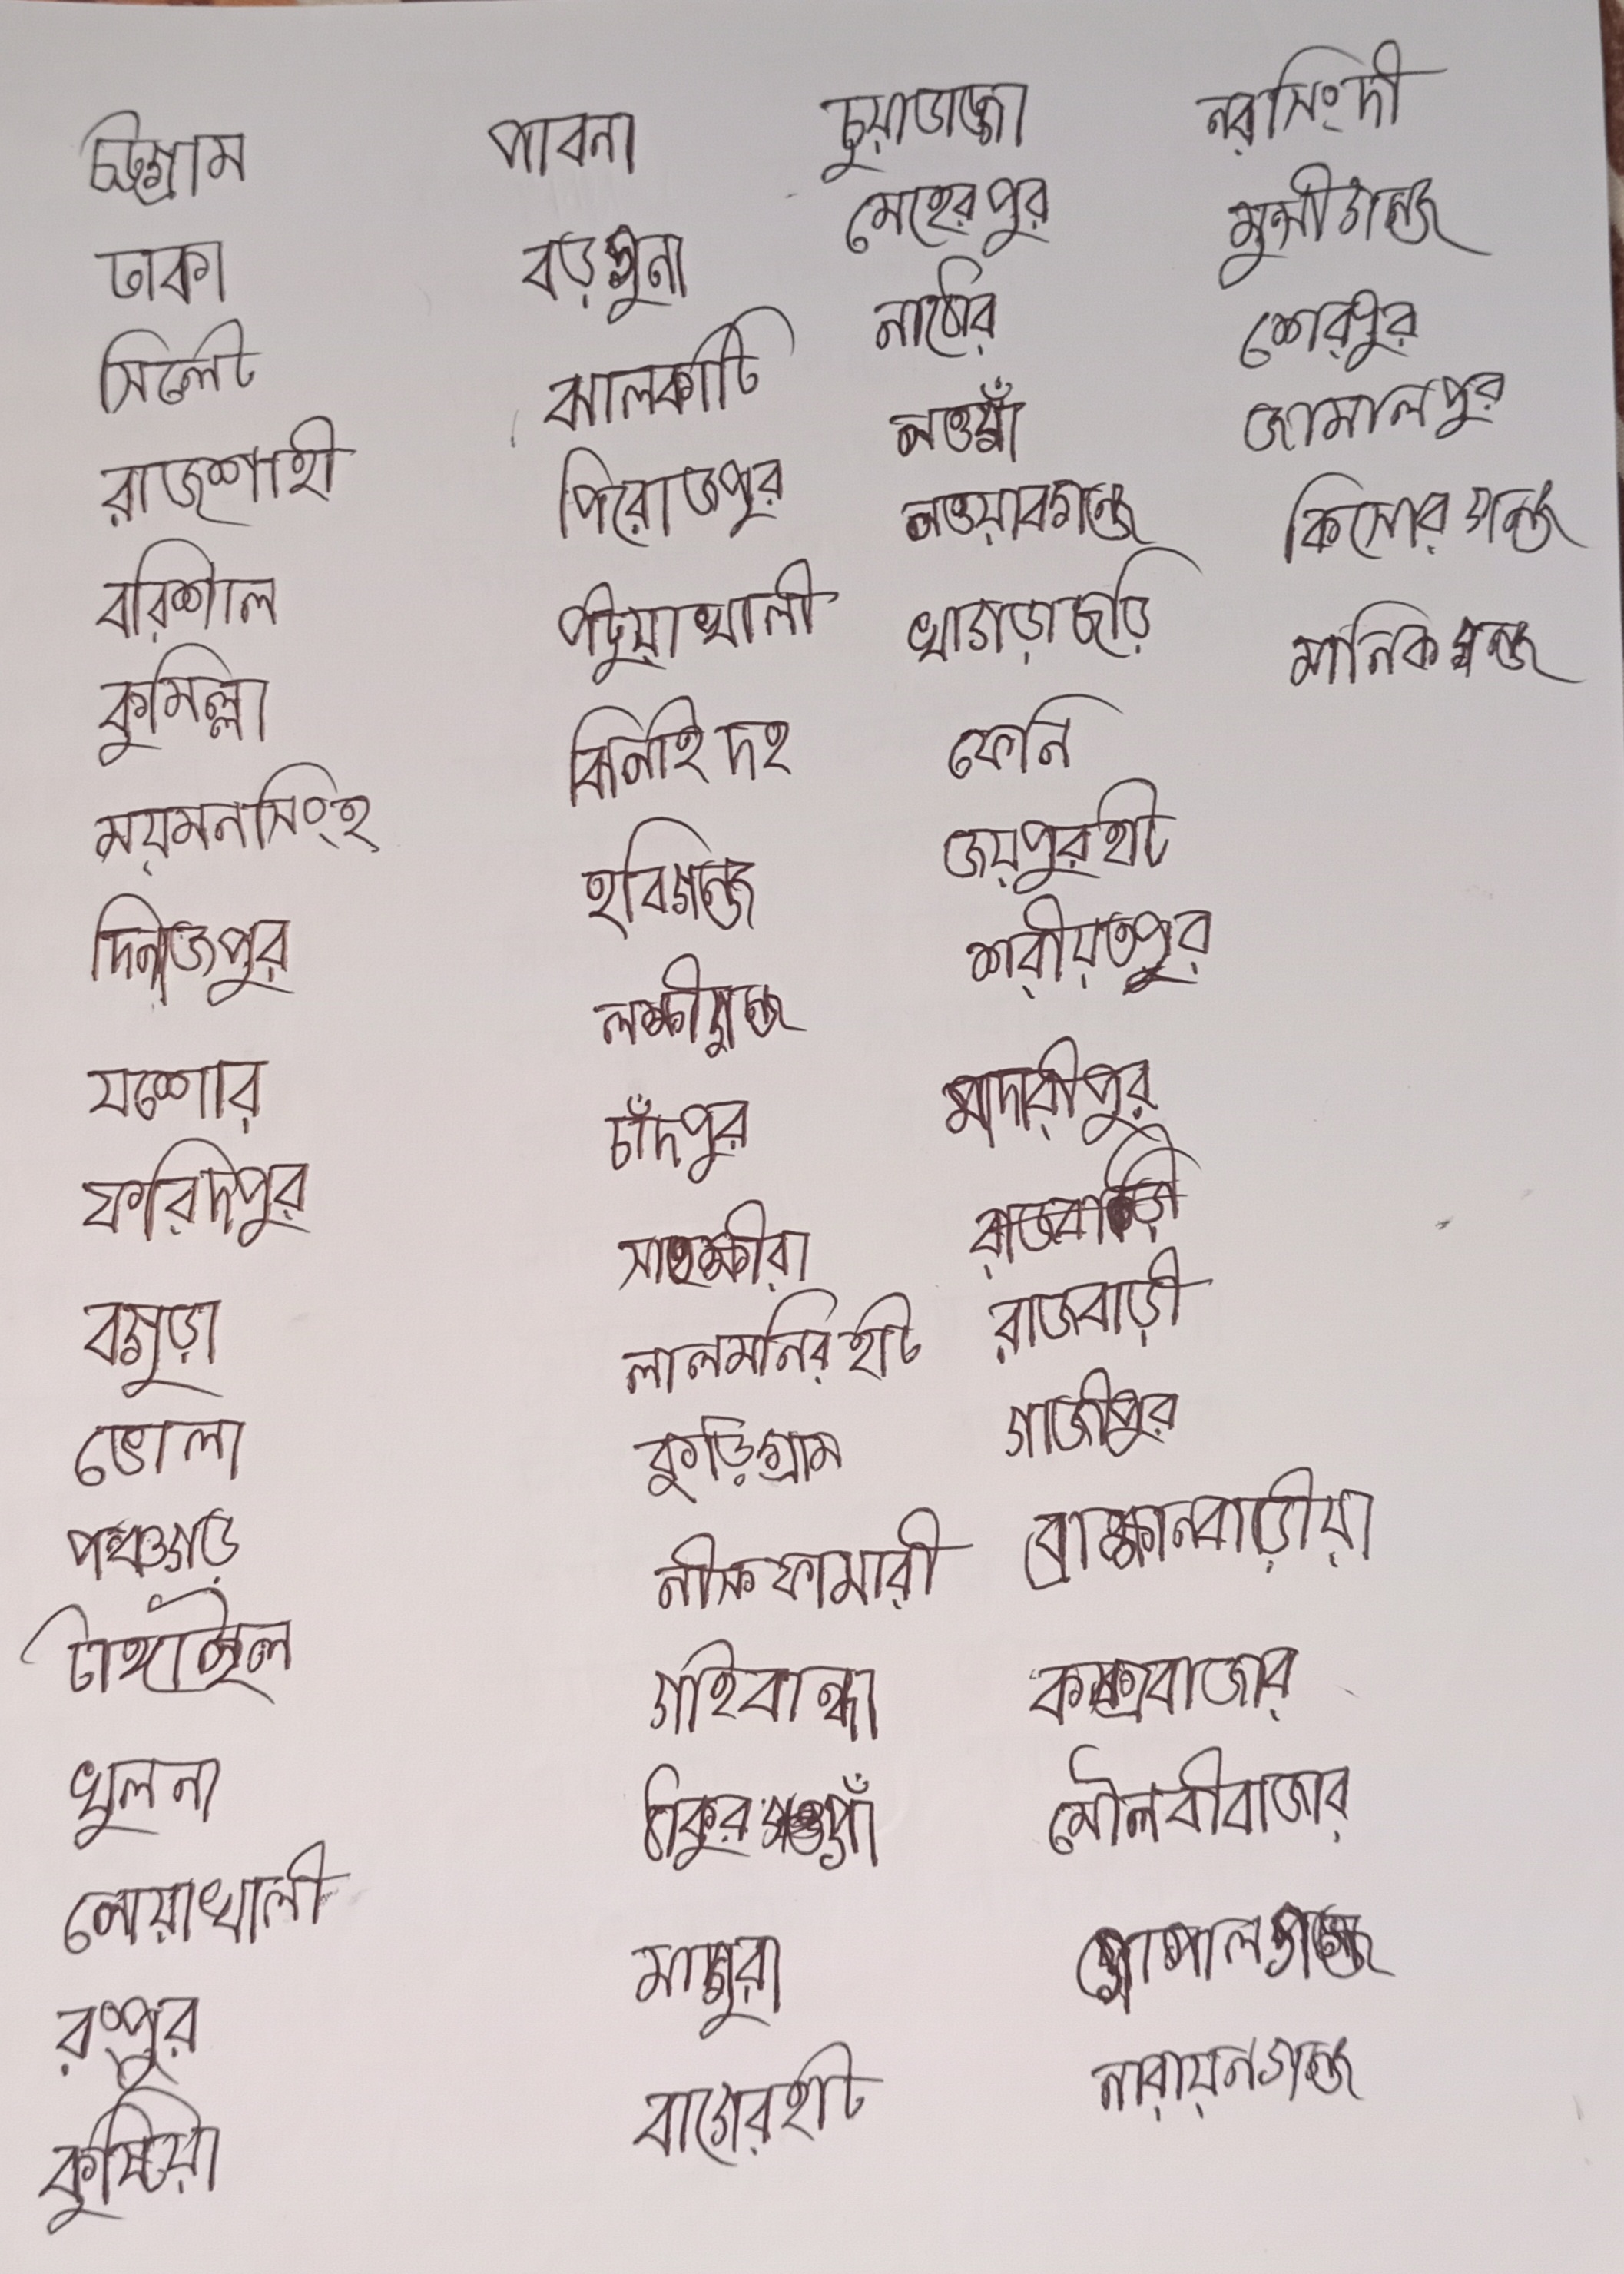 চট্টগ্রাম
ঢাকা
সিলেট
রাজশাহী
বরিশাল
কুমিল্লা
ময়মনসিংহ
দিনাজপুর
যশোর
ফরিদপুর
বগুড়া
ভোলা
পঞ্চগড়
টাঙ্গাইল
খুলনা
নোয়াখালী
রংপুর
কুষ্টিয়া
পাবনা
বড়গুনা
ঝালকাটি
পিরোজপুর
পটুয়াখালী
ঝিনাইদহ
হবিগঞ্জ
চাঁদপুর
সাতক্ষীরা
লালমনিরহাট
কুড়িগ্রাম
নীলফামারী
গাইবান্ধা
ঠাকুরগাঁ
মাগুরা
বাগেরহাট
চুয়াডাঙ্গা
মেহেরপুর
নাটোর
নওগাঁ
নওয়াবগঞ্জ
খাগড়াছড়ি
ফেনি
জয়পুরহাট
শরীয়তপুর
মাদারীপুর
রাজবাড়ী
গাজীপুর
ব্রাক্ষানবাড়ীয়া
কক্সবাজার
মৌলবীবাজার
গোপালগঞ্জ
নারায়নগঞ্জ
নরসিংদী
মুন্সীগঞ্জ
শেরপুর
জামালপুর
কিসোরগঞ্জ
মানিকগঞ্জ